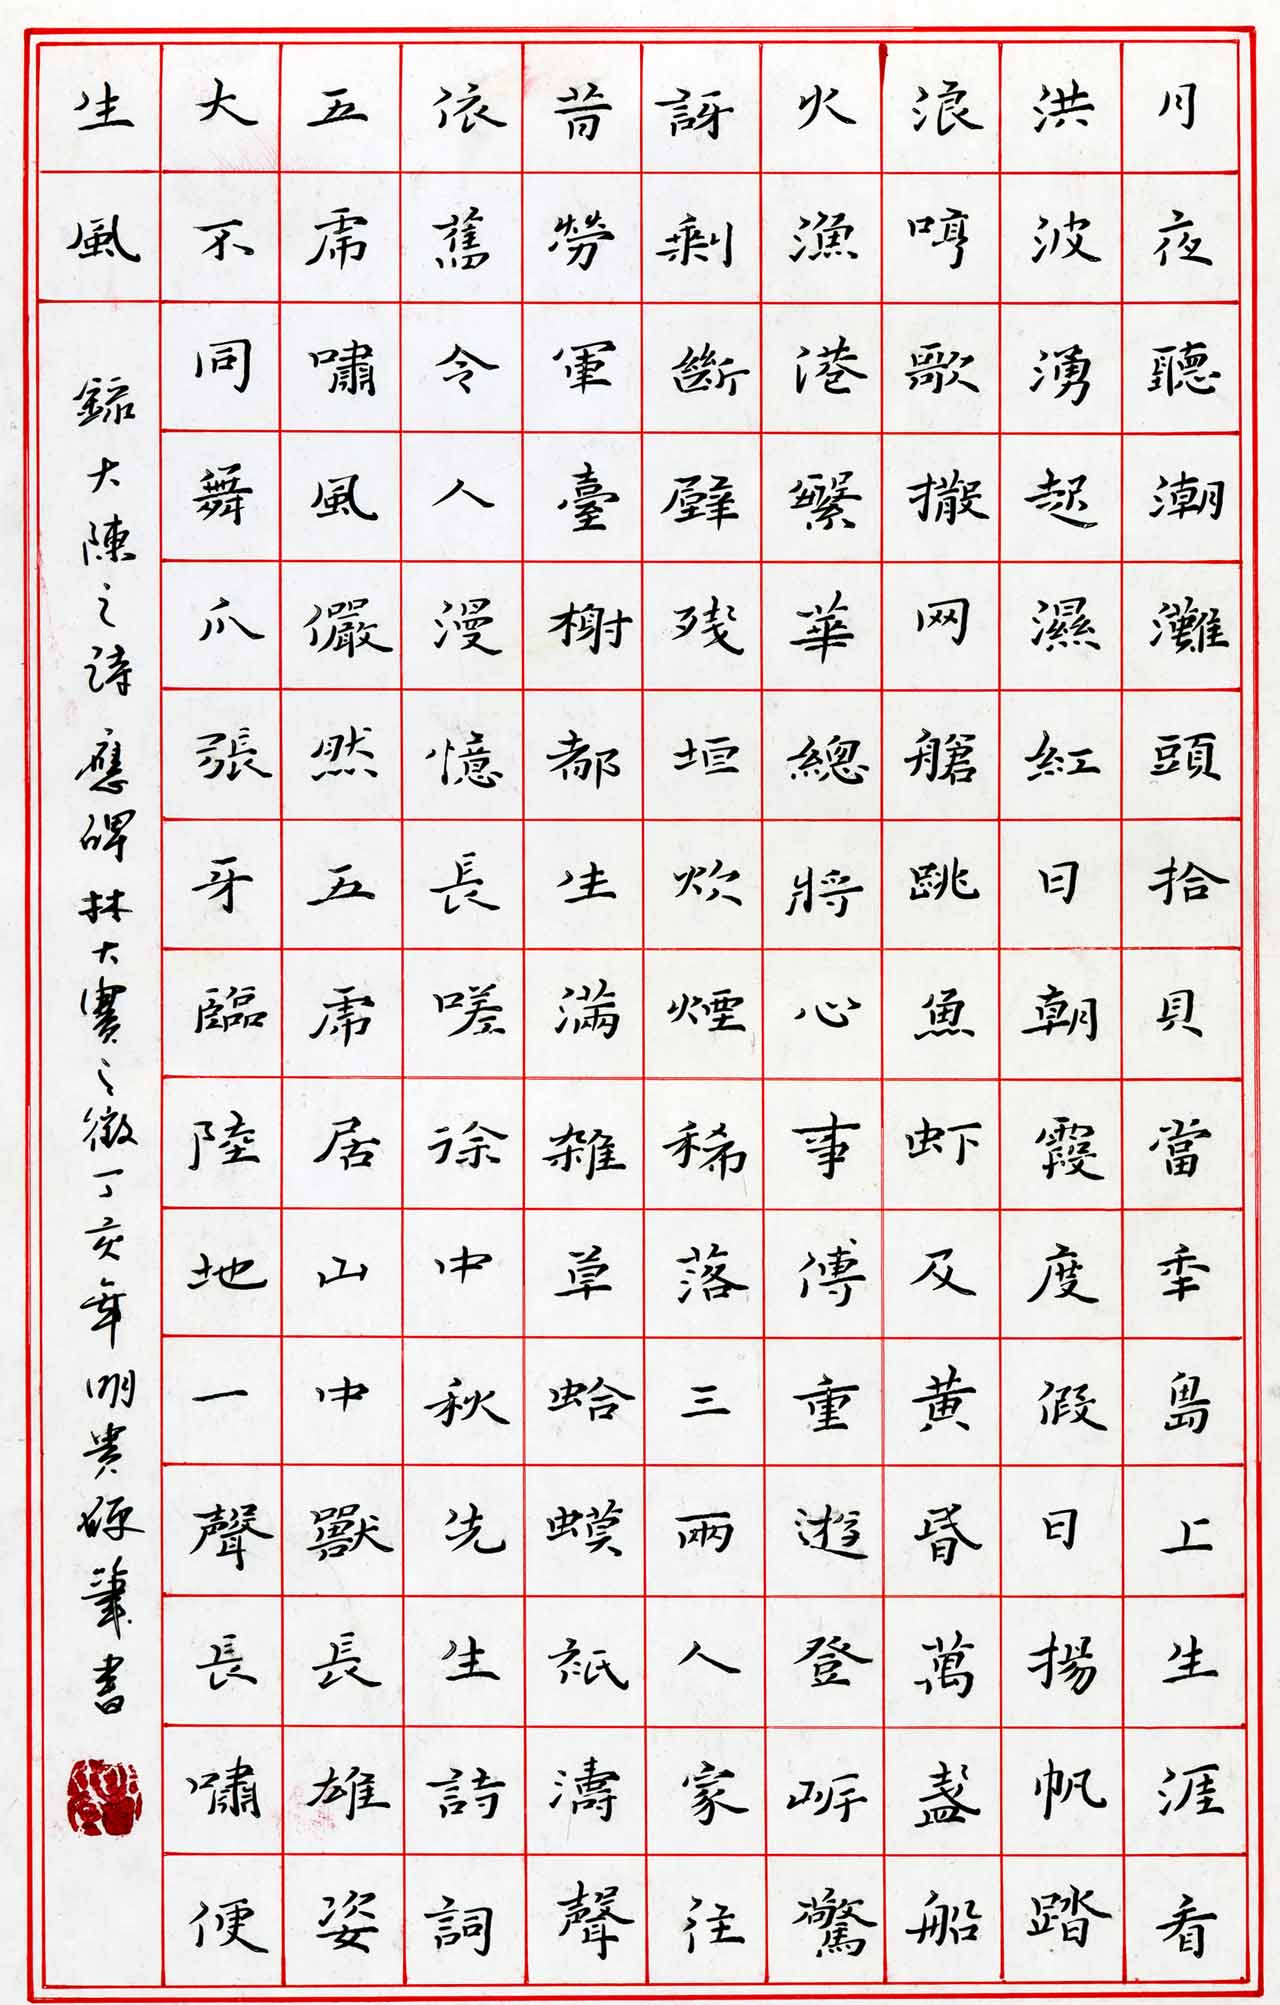 月夜聽潮灘頭拾貝當季島上生涯看
洪波湧起濕紅日朝霞度假日揚帆踏
浪哼歌撒网艙跳魚虾及黃昏萬盞船
火漁港繁華總將心事傅重遊登岍驚
訝剩斷壁残垣炊煙稀落三兩人家往
昔勞軍臺榭都生滿雜草蛤蟆祇濤聲
依舊令人漫憶長嗟徐中秋先生詩詞
五虎嘯風儼然五虎居山中獸長雄姿
大不同舞爪張牙臨陸地一聲長嘯便
生風
錄大陳之詩應碑林大賽之徵丁亥年明貴硬筆書